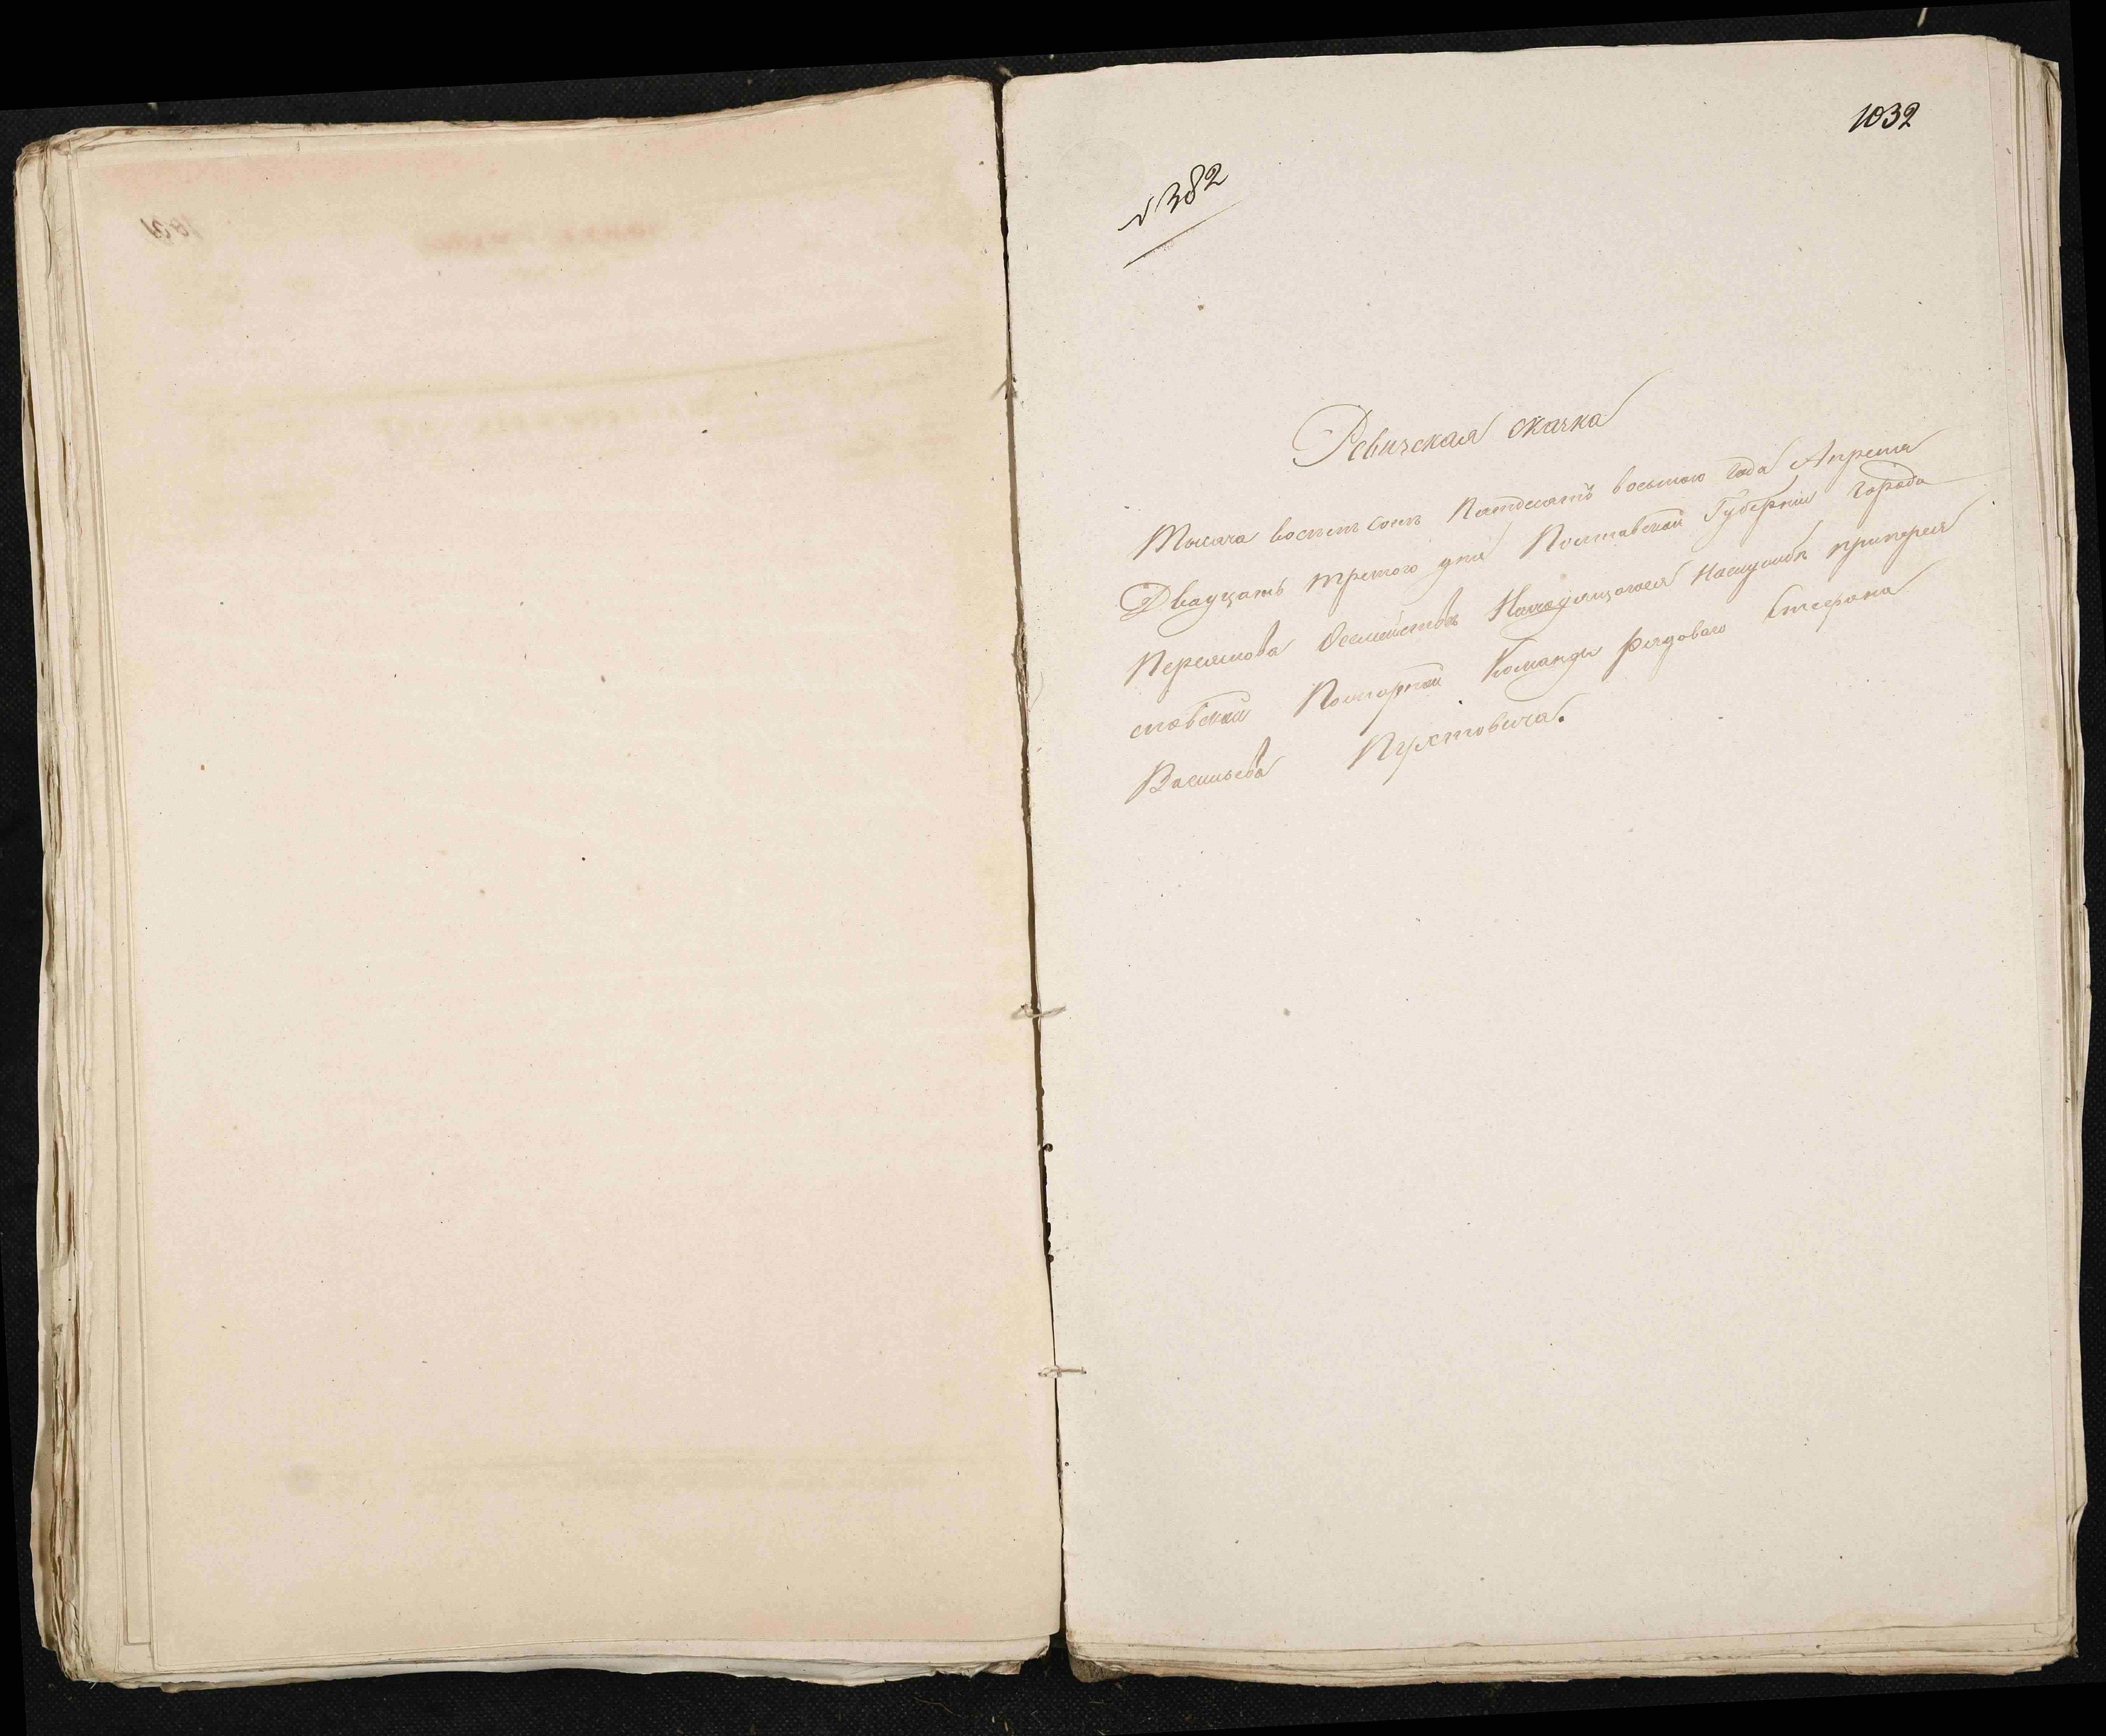 1032
№ 382
Ревизская скачка
Тысяча восемь сотъ Пятдесятъ восьмого года Апреля
Двадцать третого дня Полтавской Губернии города
Переяслова Осемействе Находящагося наслужбе припереяс
славской Команды рядоваго Стефана
Васильева Пухтовича.